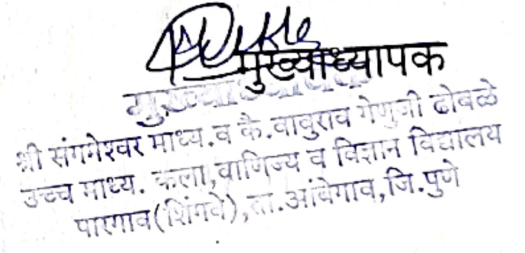 मुख्याध्यापक
मुख्याध्यापक
श्री संगमेश्वर माध्य.व कै.बाबुराव गेणुजी ढोबळे
उच्च माध्य. कला,वाणिज्य व विज्ञान विद्यालय
पारगाव(शिंगवे),ता.आंबेगाव,जि.पुणे